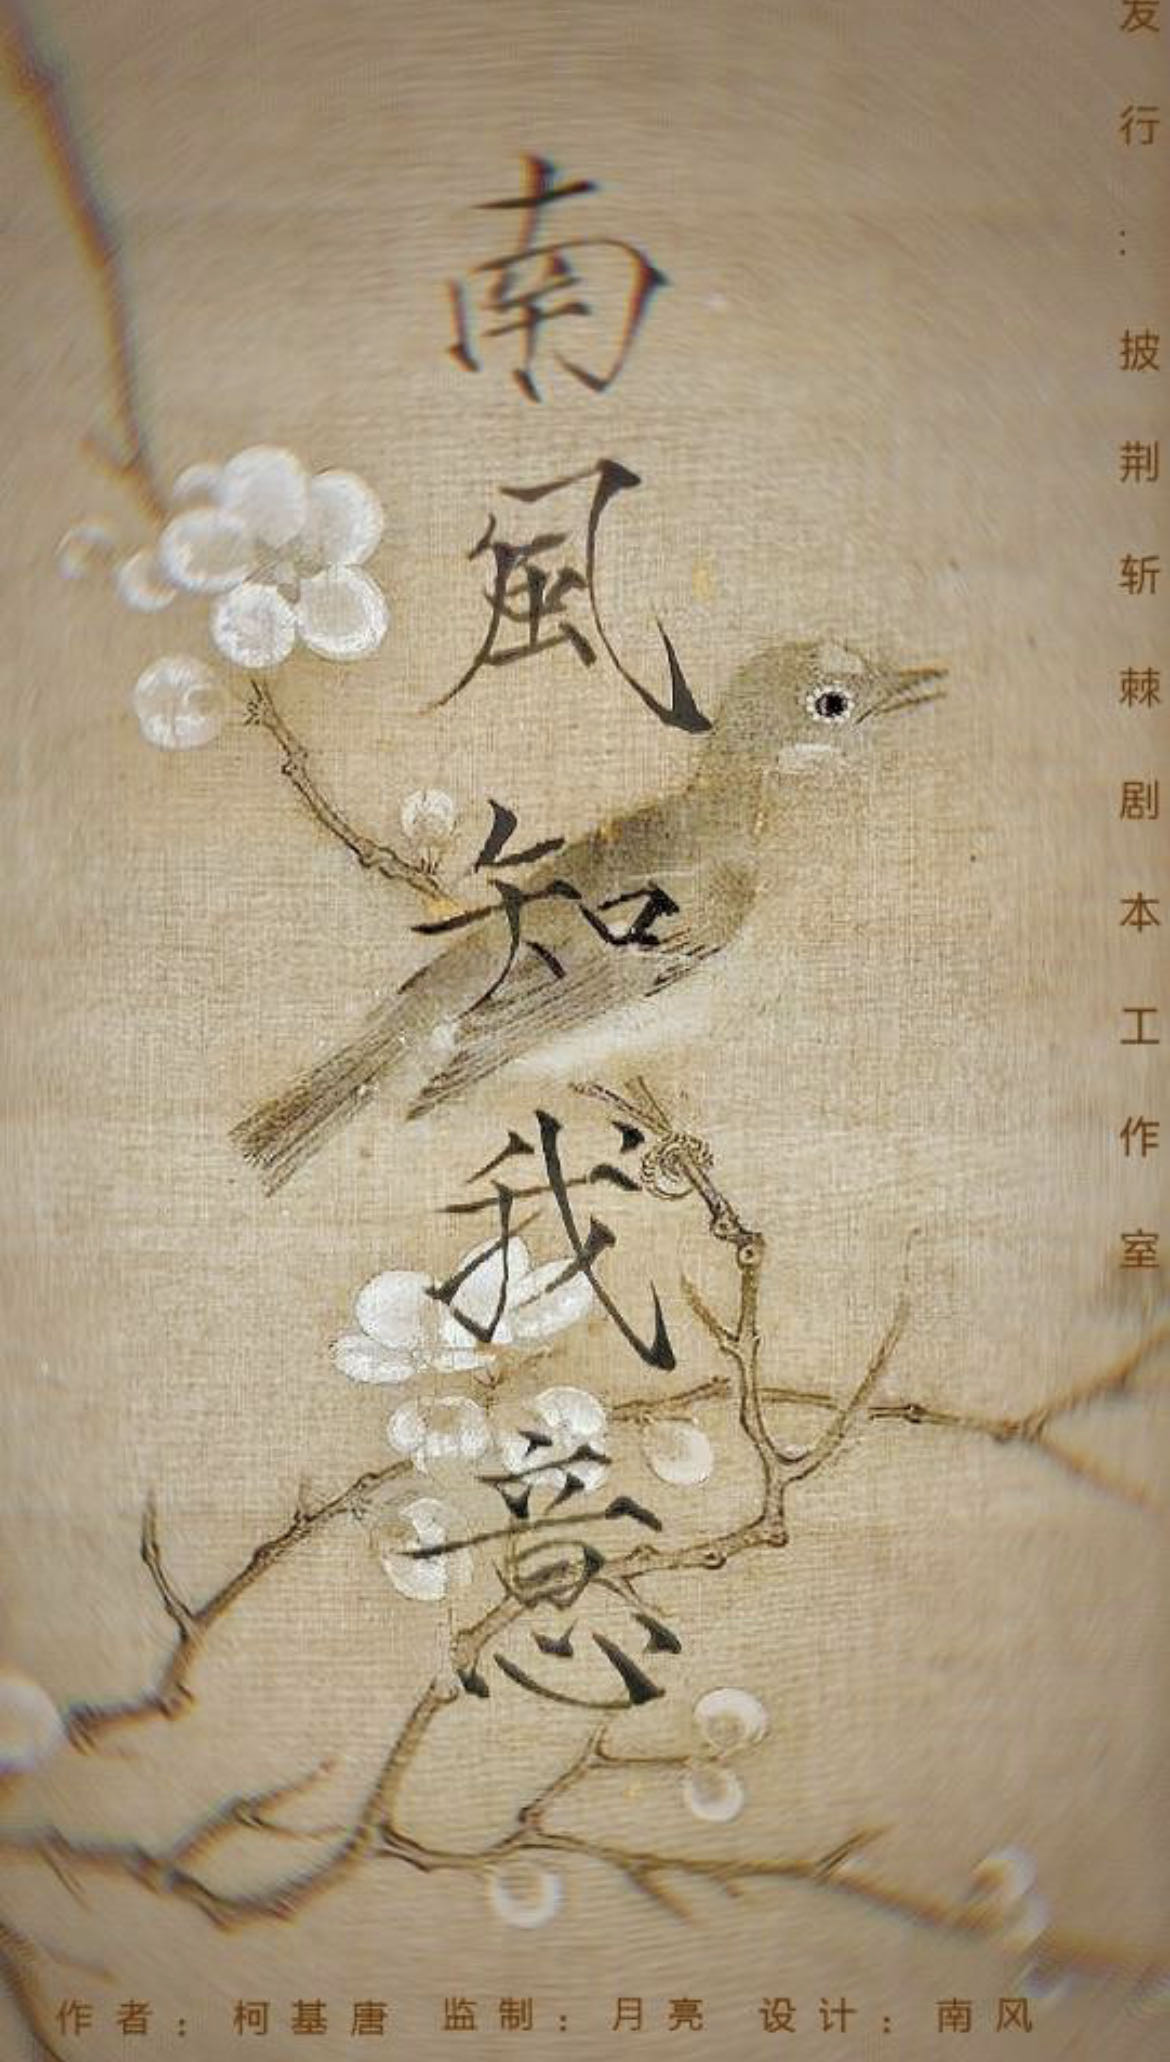 南風知我意
发行：披荆斩棘剧本工作室
作者：柯基唐 监制：月亮 设计：南风